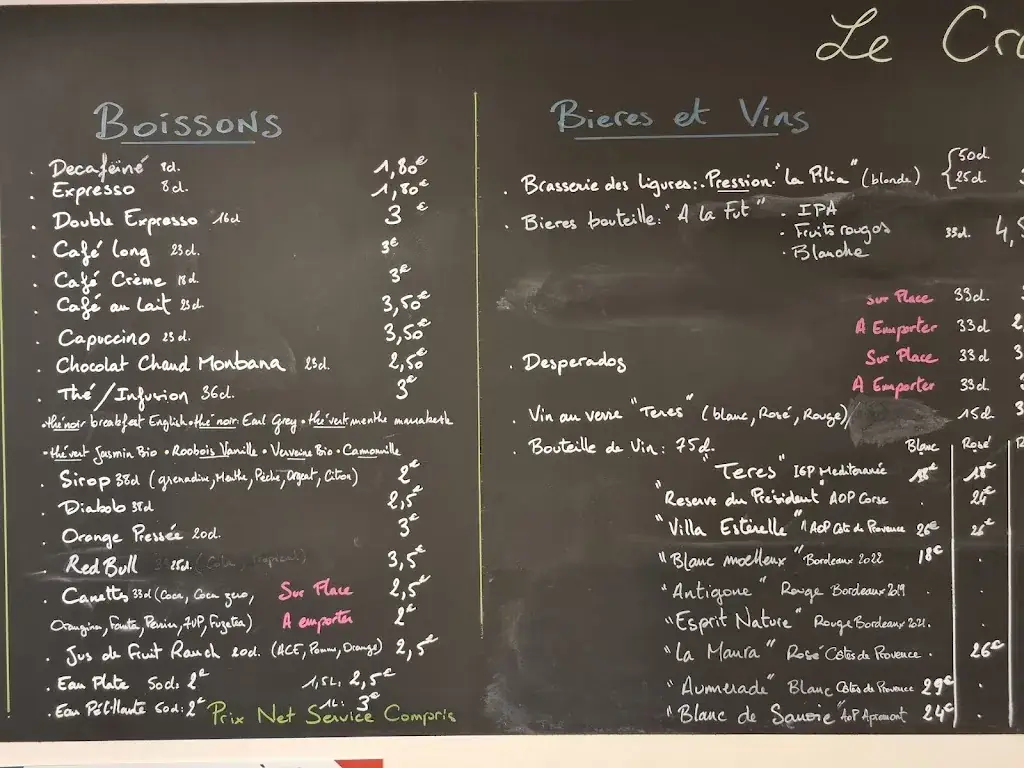 Le Cr
Boissons
. Decaféiné 8cl. 1,80€
. Expresso 8cl. 1,80€
. Double Expresso 16cl 3€
. Café long 23cl. 3€
. Café Crème 18cl. 3€
. Café au lait 23cl. 3,50€
. Capuccino 23cl. 3,50€
. Chocolat Chaud Monbana 23cl. 2,50
. Thé/Infusion 36cl. 3€
•thé noir breakfast English•thé noir Earl Grey•thé vert menthe marrakech
•thé vert Jasmin Bio•Roobois Vanille•Verveine Bio•Camomille
. Sirop 38cl (grenadine, Menthe, Pêche, Orgeat, Citron) 2€
. Diabolo 38cl 2,5€
. Orange Pressée 20cl. 3€
. Red Bull 25cl. 3,5€
. Canettes 33cl (Coca, Coca zero, Sur Place 2,5€
Orangina, Fanta, Perrier, 7UP, Fuzetea) A emporter 2€
. Jus de Fruit Rauch 20cl. (ACE, Pomme, Orange) 2,5€
. Eau Plate 50cl: 2€ 1,5L: 2,5€
. Eau Pétillante 50cl: 2€ 1L: 3€
Prix Net Service Compris
Bieres et Vins
. Brasserie des Ligures: Pression "La Pilia" (blonde) { 50cl
25cl
. Bieres bouteille: "A la Fut" • IPA
• Fruits rouges 33cl. 4,5
• Blanche
Sur Place 33cl.
A Emporter 33cl 2,
. Desperados Sur Place 33cl 3
A Emporter 33cl
. Vin au verre "Teres" (blanc, Rosé, Rouge) 15cl 3
. Bouteille de Vin: 75cl. Blanc Rosé R
"Teres" IGP Mediterranée 18€ 18€
"Reserve du Président" AOP Corse . 24€
"Villa Esterelle" AOP Côte de Provence 26€ 26€
"Blanc moelleux" Bordeaux 2022 18€ .
"Antigone" Rouge Bordeaux 2019 . .
"Esprit Nature" Rouge Bordeaux 2021. . .
"La Maura" Rosé Côtes de Provence . 26€
"Aumerade" Blanc Côtes de Provence 29€ .
"Blanc de Savoie" AOP Apremont 24€ .